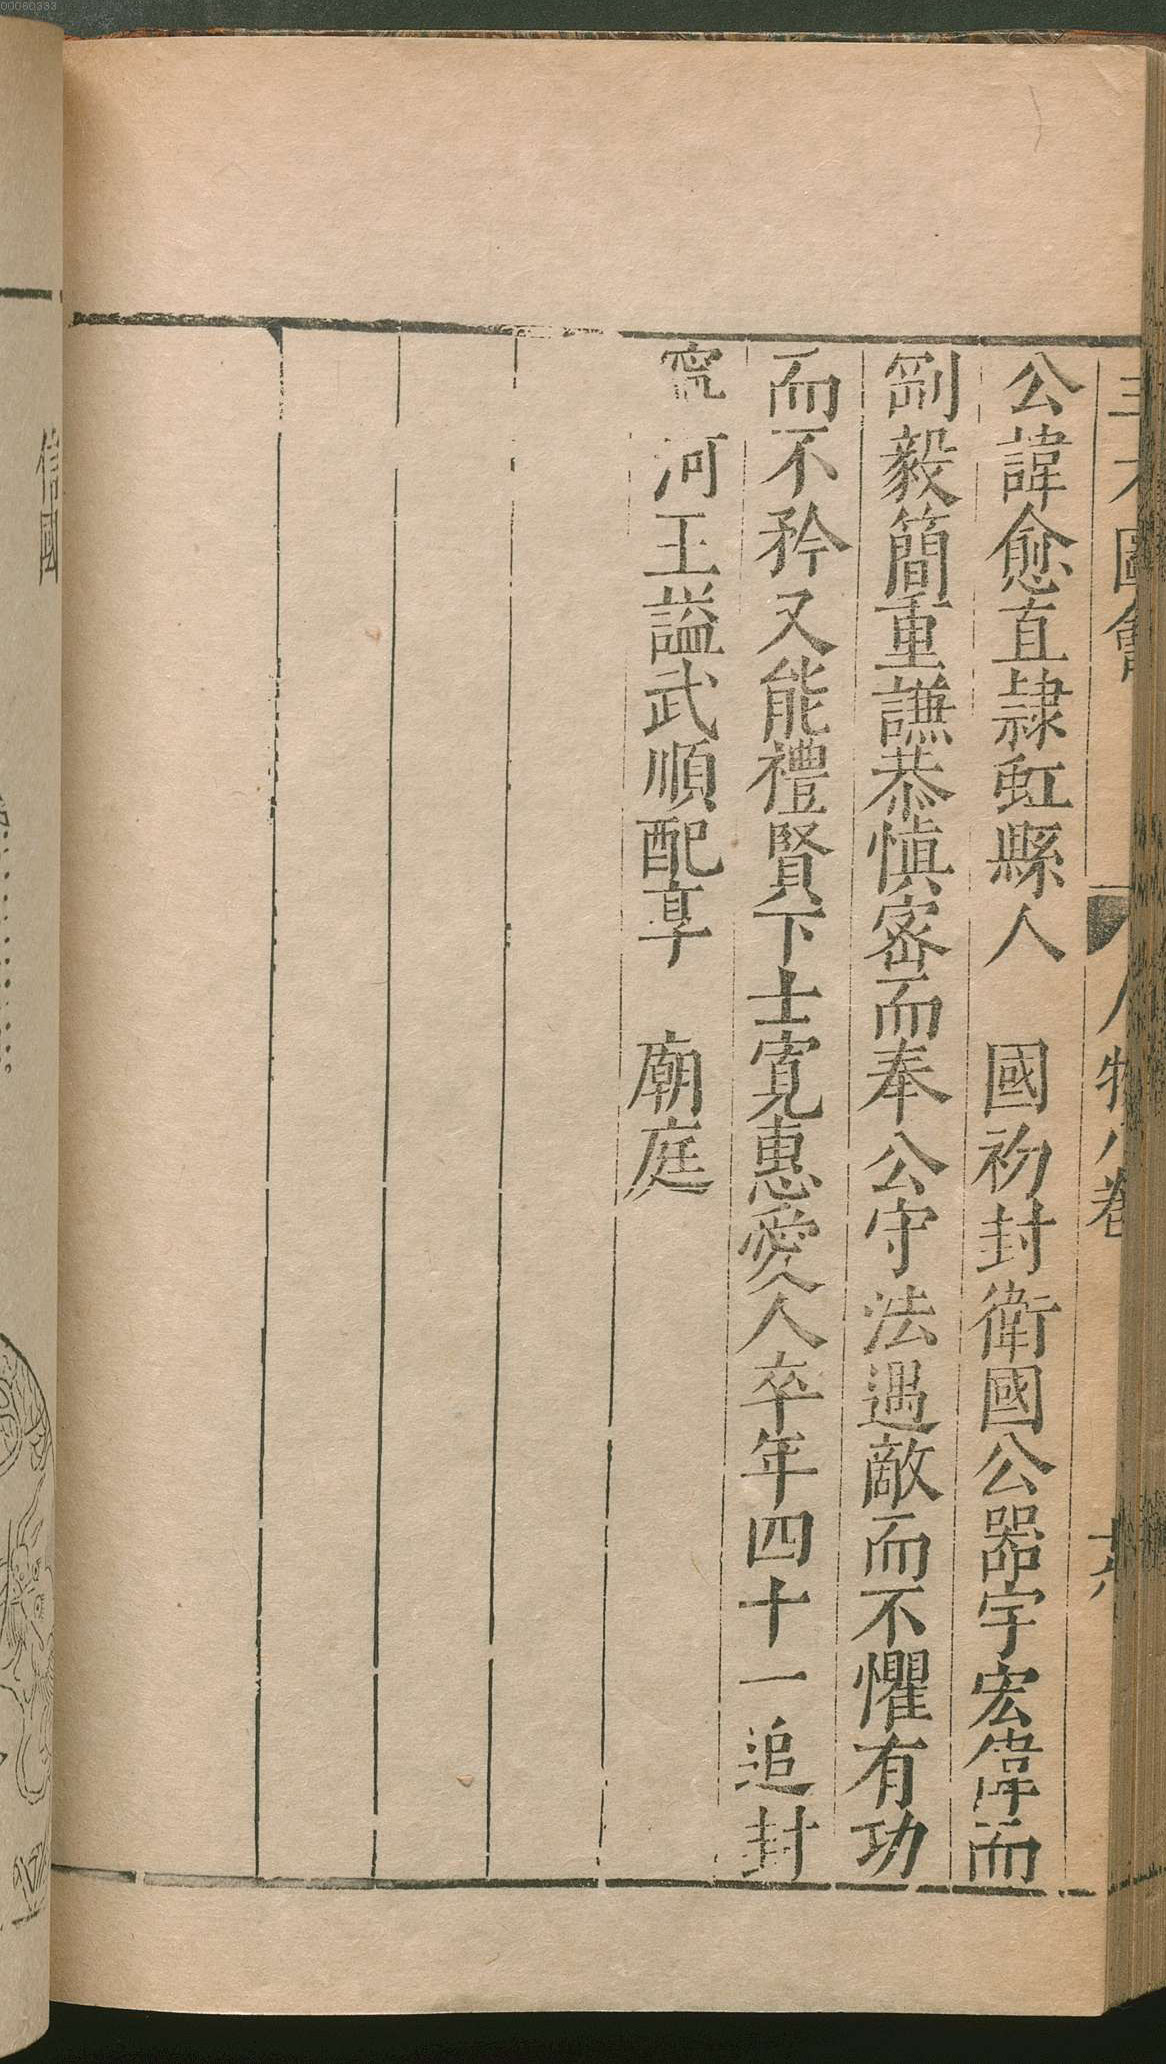 三才圖會 人物八卷 十六
公諱愈直隷虹縣人 國初封衛國公器宇宏偉而
剛毅簡重謙恭愼密而奉公守法遇敵而不懼有功
而不矜又能禮賢下士寬惠愛人卒年四十一追封
寧河王謚武順配享 廟庭
信國
00060333